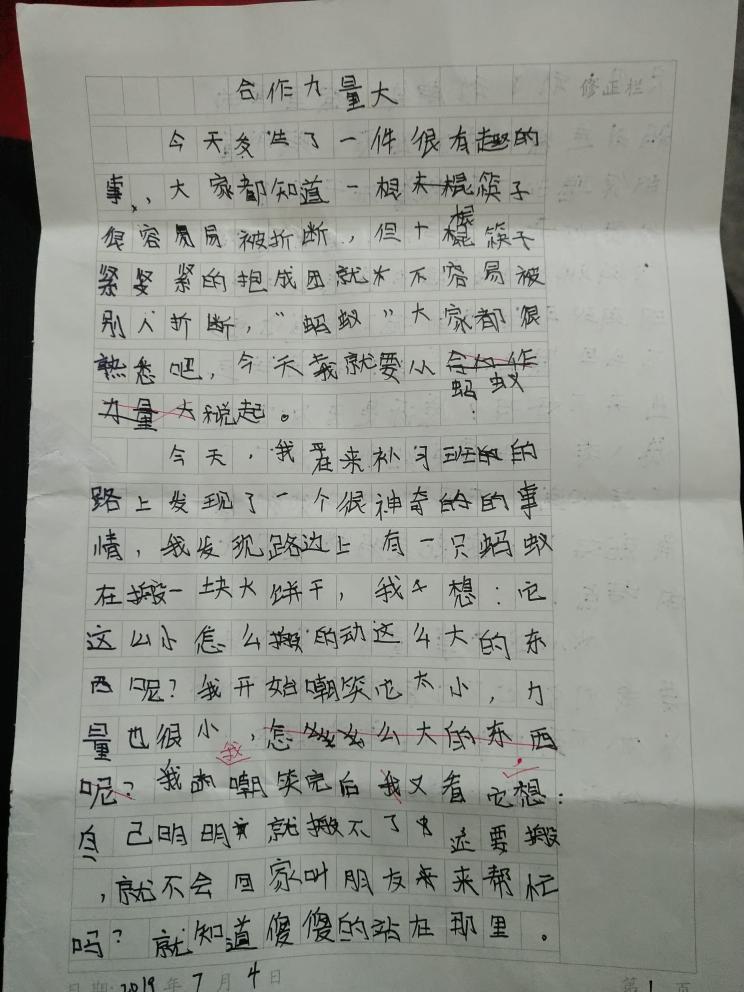 合作力量大
修正栏
今天发生了一件很有趣的
事,大家都知道一根筷子
很容易易被折断,但十根筷子
紧紧紧的抱成团就不容易被
别人折断,“蚂蚁”大家都很
熟悉吧,今天我就要从蚂蚁
说起。
今天,我在来补习班的
路上发现了一个很神奇的的事
情,我发现路边上有一只蚂蚁
在搬一块大饼干,我想:它
这么小怎么搬的动这么大的东
西呢?我开始嘲笑它太小,力
量也很小,怎么大的东西
呢?我嘲笑完后我又看它想:
自己明明就搬不了还要搬
,就不会回家叫朋友来帮忙
吗?就知道傻傻的站在那里。
日期:2019年7月4日
第1页